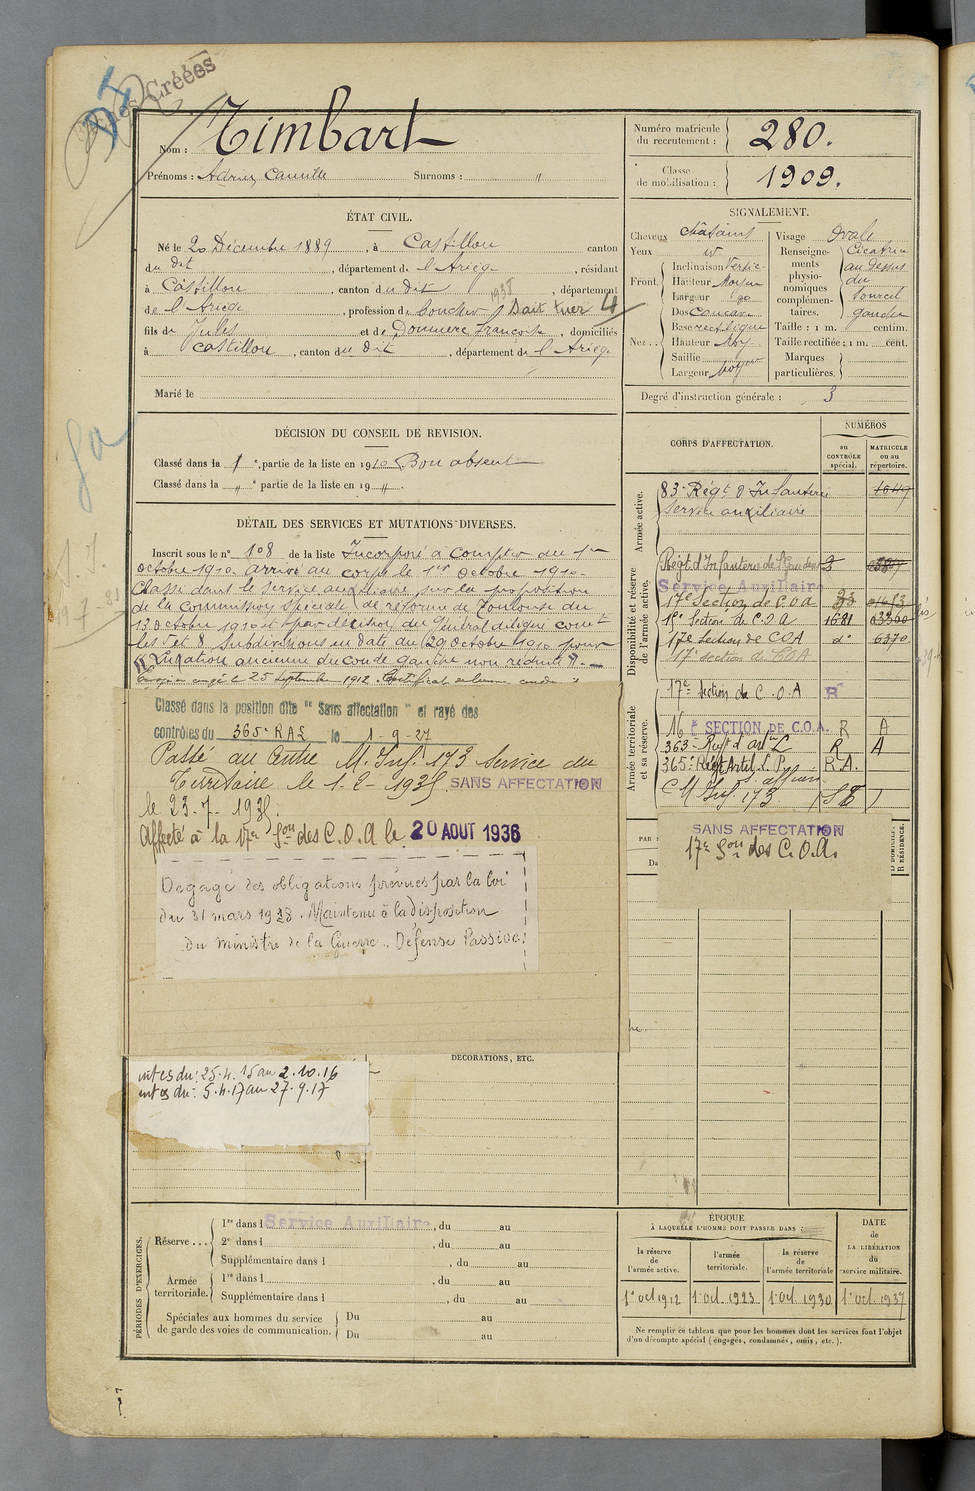 Créées
Nom : Timbart
Prénoms : Adrien Camille Surnoms : "
Numéro matricule du recrutement : 280.
Classe de mobilisation : 1909.
ÉTAT CIVIL.
Né le 20 Décembre 1889, à Castillon canton
du dit, département de l'Ariège, résidant
à Castillon, canton du dit, département
de l'Ariège, profession de boucher Sait tuer 4
fils de Jules et de Françoise, domiciliés
à Castillon, canton du dit, département de l'Ariège
Marié le
SIGNALEMENT.
Cheveux châtains
Yeux
Front. Inclinaison Vertic.
Hauteur Moyen
Largeur
Nez.. Dos concave
Base rectiligne
Hauteur Moy.
Saillie
Largeur moy
Visage Ovale
Renseignements physionomiques complémentaires. Cicatrice au dessus du sourcil gauche
Taille : 1 m. centim.
Taille rectifiée : 1 m. cent.
Marques particulières.
Degré d'instruction générale : 3
DÉCISION DU CONSEIL DE REVISION.
Classé dans la 1e partie de la liste en 1910 Bon absent
Classé dans la " e partie de la liste en 19 ".
DÉTAIL DES SERVICES ET MUTATIONS DIVERSES.
Inscrit sous le n° 108 de la liste Incorporé à compter du 1er
octobre 1910. arrivé au corps le 1er octobre 1910.
Classé dans le service auxiliaire sur la proposition
de la commission spéciale de réforme de Toulouse du
13 octobre 1910 et par décision du Général délégué comt
les 5 et 8 subdivisions en date du 29 octobre 1910 pour
"Luxation ancienne du coude gauche non réduite".
Envoyé en congé le 25 Septembre 1912. Certificat de bonne conduite
Classé dans la position dite "Sans affectation" et rayé des
contrôles du 365e RAL le 1-9-27
Passé au Centre M. Inf. 173 Service du
Territoire le 1-2-1935. SANS AFFECTATION
le 23-7-1935.
Affecté à la 17e Son des C.O.A le 20 AOUT 1936
Dégagé des obligations prévues par la loi
du 31 mars 1928. Maintenu à la disposition
du Ministre de la Guerre. Défense Passive.
int es du : 25.4.15 au 2.10.16
int es du : 5.4.17 au 27.9.17
CORPS D'AFFECTATION.
NUMÉROS
au CONTRÔLE spécial.
MATRICULE ou au répertoire.
Armée active.
83e Régt d'Infanterie
Service auxiliaire
Disponibilité et réserve de l'armée active.
Régt d'Infanterie de St Gaudens
Service Auxiliaire
17e Section de C.O.A
Section de C.O.A 1681
17e Section de COA d° 6370
17e section de COA
Armée territoriale et sa réserve.
17e Section de C.O.A R
16e SECTION DE C.O.A. R A
363e Regt d'artie L R A
365e Régt Artil. L.P. R.A.
C M Inf 173 (S T)
SANS AFFECTATION
17e Son des C.O.A.
D DOMICILE.
R RÉSIDENCE.
DÉCORATIONS, ETC.
PÉRIODES D'EXERCICES.
Réserve... 1re dans l Service Auxiliaire, du au
2e dans l , du au
Supplémentaire dans l , du au
Armée territoriale. 1re dans l , du au
Supplémentaire dans l , du au
Spéciales aux hommes du service de garde des voies de communication. Du au
Du au
ÉPOQUE
À LAQUELLE L'HOMME DOIT PASSER DANS :
la réserve de l'armée active.
l'armée territoriale.
la réserve de l'armée territoriale
DATE de LA LIBÉRATION du service militaire.
1er oct 1912
1 oct. 1923
1 Oct. 1930
1er Oct. 1937
Ne remplir ce tableau que pour les hommes dont les services font l'objet
d'un décompte spécial (engagés, condamnés, omis, etc.).